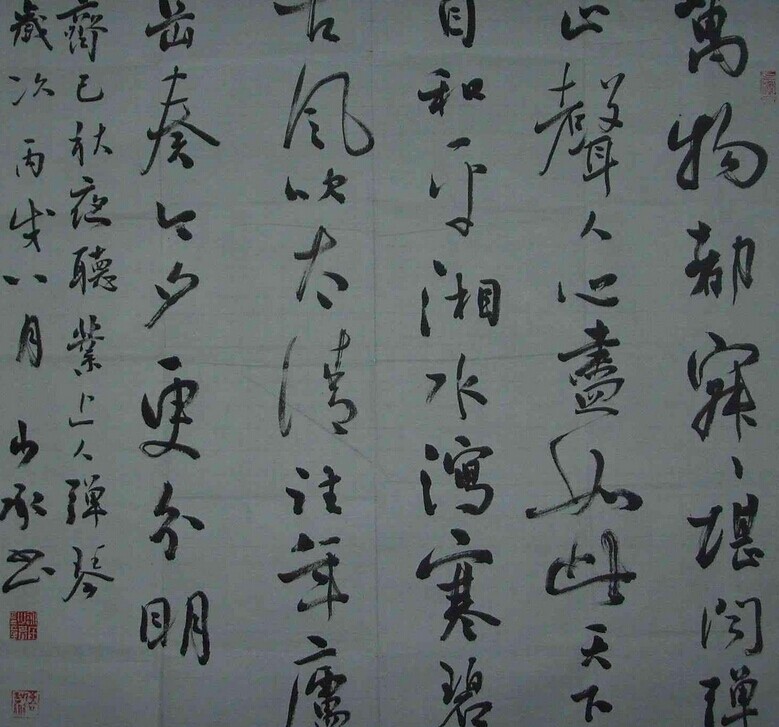 萬物都寂〻堪闻弹
正聲人心盡如此天下
自和平湘水瀉寒碧
古风吹太清往年廬
岳奏今夕更分明
齊己秋夜聽業上人弹琴
歲次丙戌八月书